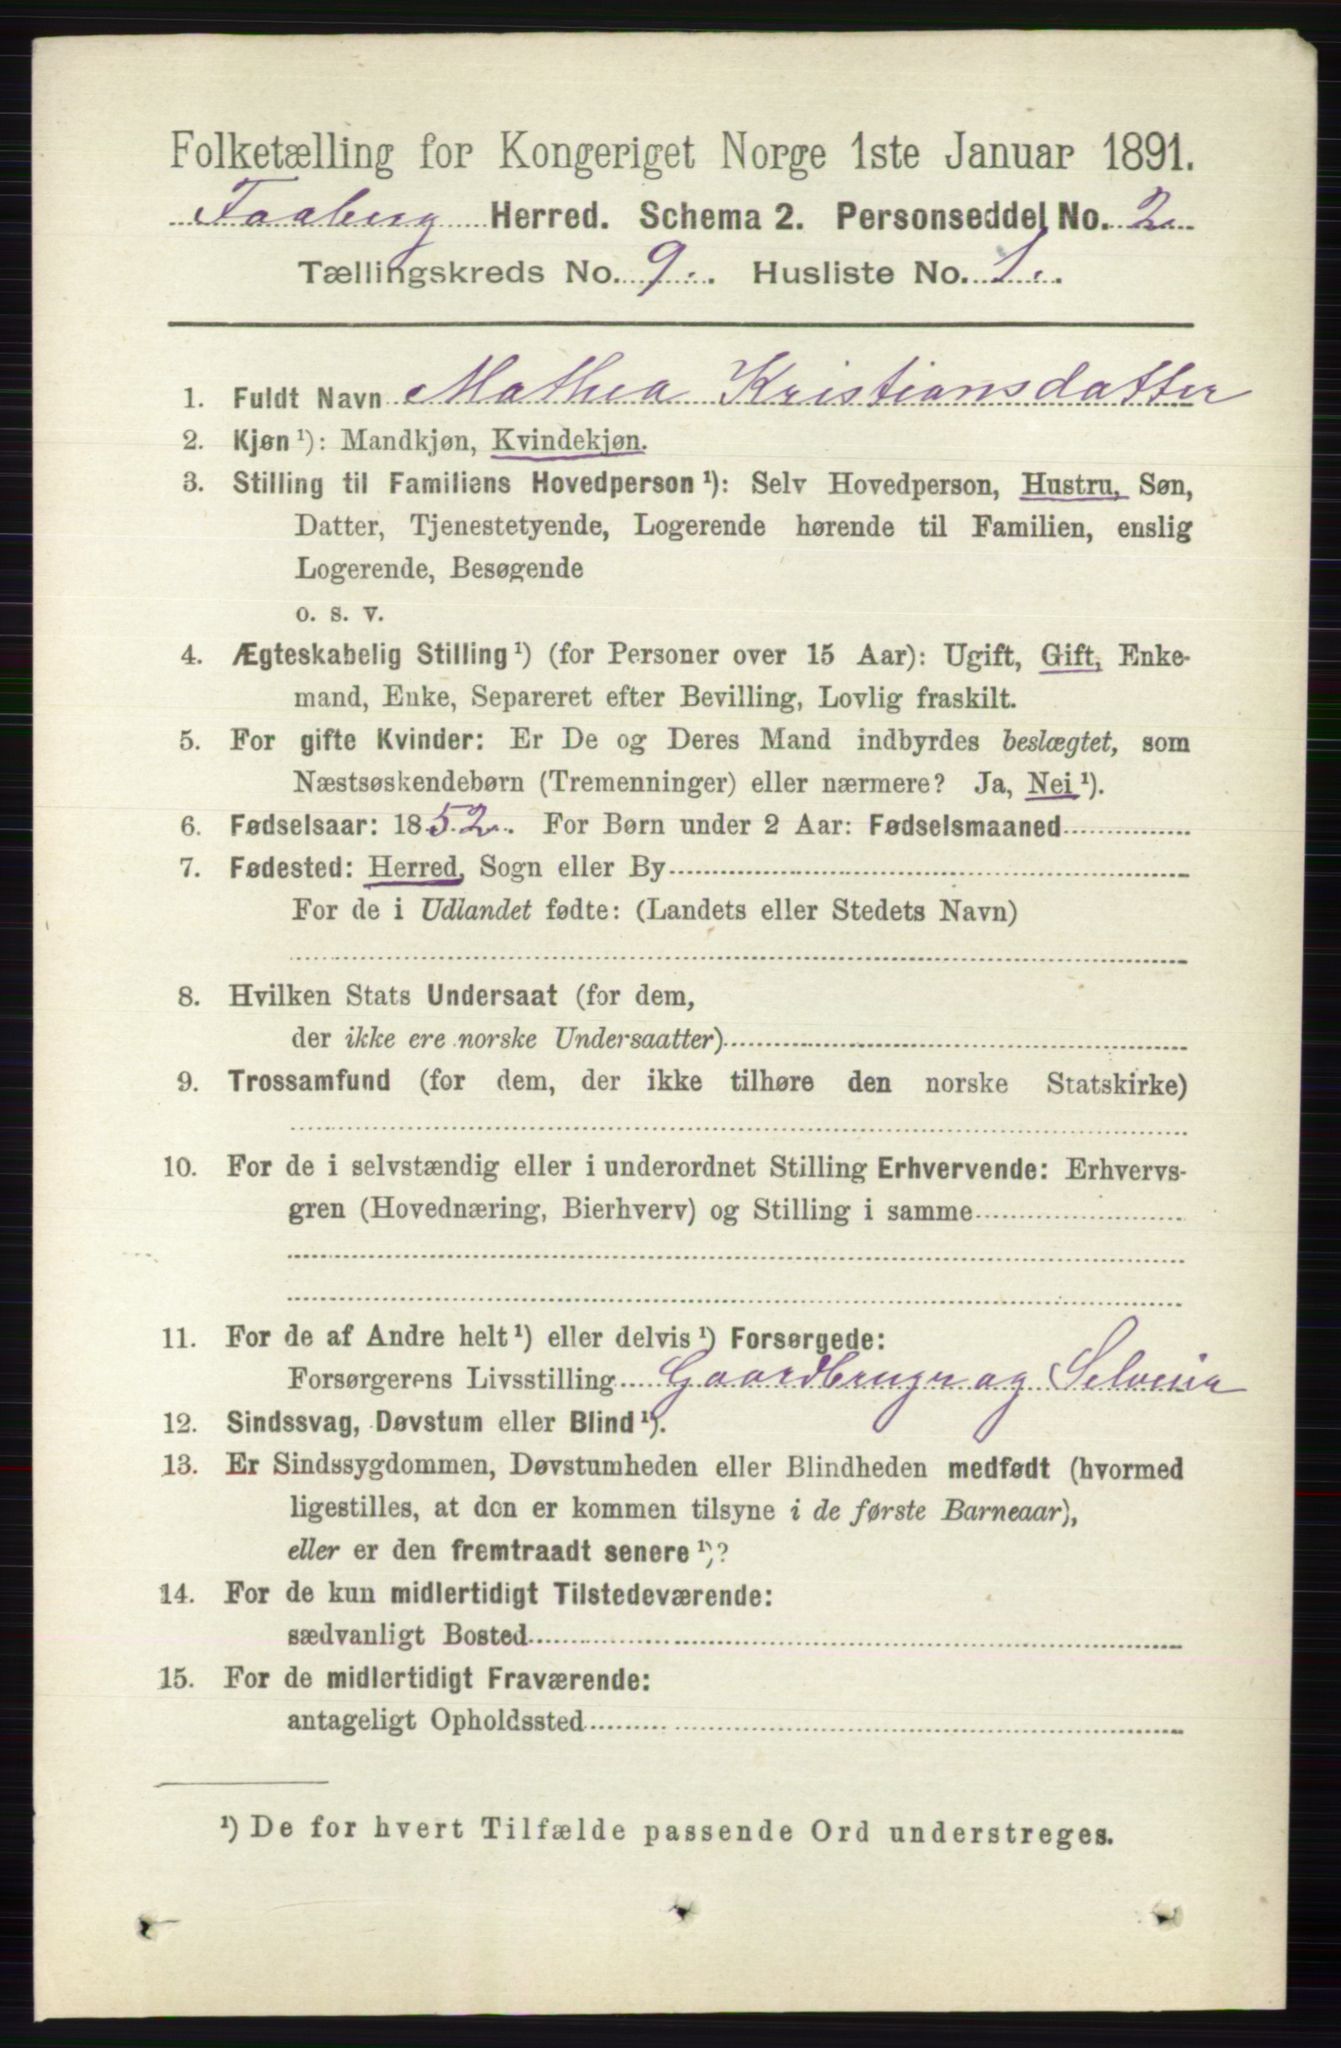 Folketælling for Kongeriget Norge 1ste Januar 1891.
Faaberg Herred. Schema 2. Personseddel No. 2
Tællingskreds No. 9. Husliste No. 1.
1. Fuldt Navn Mathea Kristiansdatter
2. Kjøn ¹): Mandkjøn, Kvindekjøn.
3. Stilling til Familiens Hovedperson ¹): Selv Hovedperson, Hustru, Søn,
Datter, Tjenestetyende, Logerende hørende til Familien, enslig
Logerende, Besøgende
o. s. v.
4. Ægteskabelig Stilling ¹) (for Personer over 15 Aar): Ugift, Gift, Enke-
mand, Enke, Separeret efter Bevilling, Lovlig fraskilt.
5. For gifte Kvinder: Er De og Deres Mand indbyrdes beslægtet, som
Næstsøskendebørn (Tremenninger) eller nærmere? Ja, Nei ¹).
6. Fødselsaar: 1852. For Børn under 2 Aar: Fødselsmaaned
7. Fødested: Herred, Sogn eller By
For de i Udlandet fødte: (Landets eller Stedets Navn)
8. Hvilken Stats Undersaat (for dem,
der ikke ere norske Undersaatter)
9. Trossamfund (for dem, der ikke tilhøre den norske Statskirke)
10. For de i selvstændig eller i underordnet Stilling Erhvervende: Erhvervs-
gren (Hovednæring, Bierhverv) og Stilling i samme
11. For de af Andre helt ¹) eller delvis ¹) Forsørgede:
Forsørgerens Livsstilling Gaardbruger og Selveier
12. Sindssvag, Døvstum eller Blind ¹).
13. Er Sindssygdommen, Døvstumheden eller Blindheden medfødt (hvormed
ligestilles, at den er kommen tilsyne i de første Barneaar),
eller er den fremtraadt senere ¹)?
14. For de kun midlertidigt Tilstedeværende:
sædvanligt Bosted
15. For de midlertidigt Fraværende:
antageligt Opholdssted
¹) De for hvert Tilfælde passende Ord understreges.